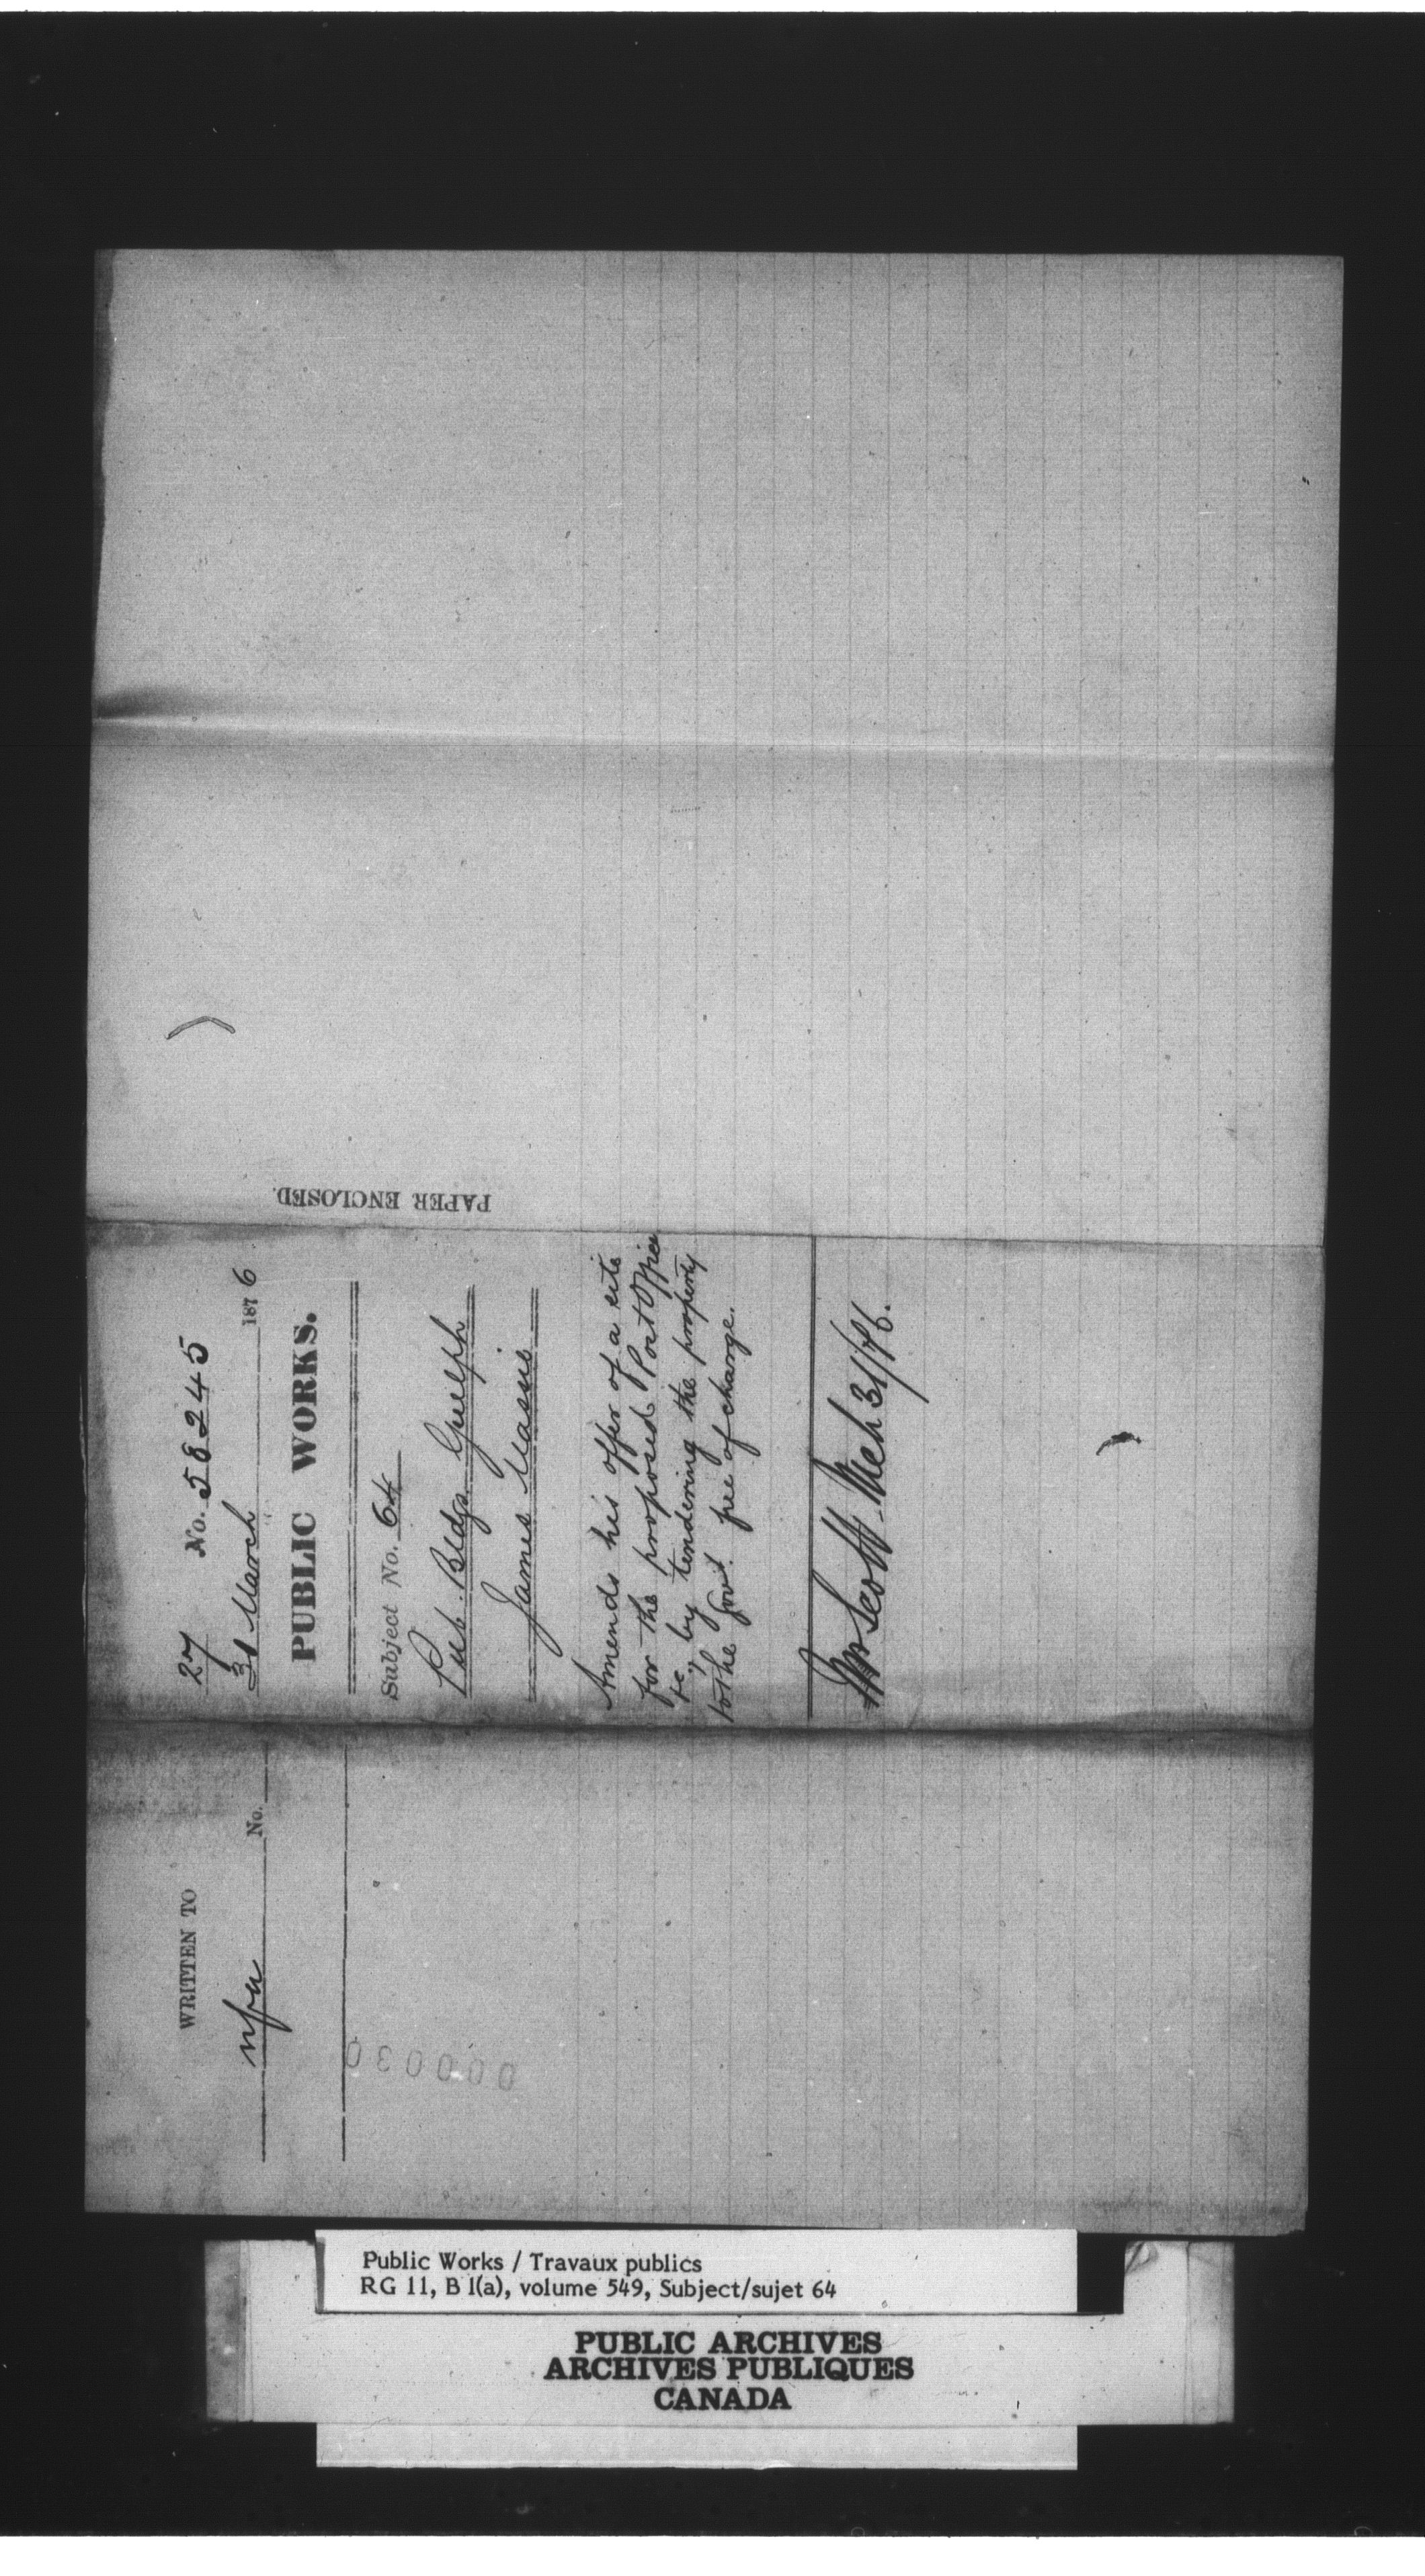 27 No. 58245
31 March 1876
PUBLIC WORKS.
Subject No. 64
Pub. Bldgs. Guelph
James Massie
Amends his offer of a site
for the proposed Post Office
&c, by tendering the property
to the Govt. free of charge.
Mr Scott Mch 31/76.
PAPER ENCLOSED.
WRITTEN TO
No.
000030
Public Works / Travaux publics
RG 11, B 1(a), volume 549, Subject/sujet 64
PUBLIC ARCHIVES
ARCHIVES PUBLIQUES
CANADA